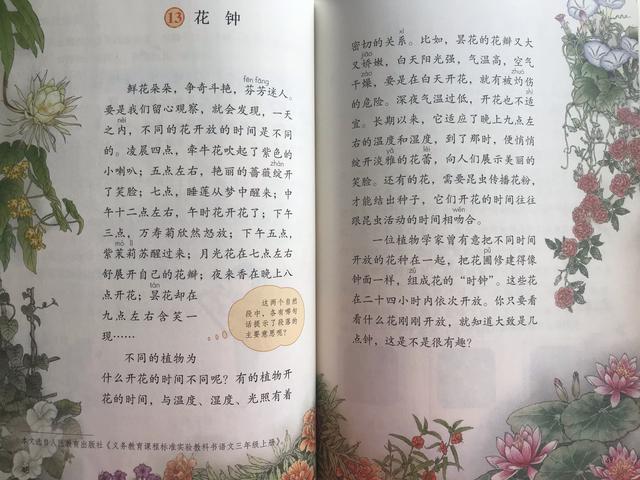 13 花钟
fēn fāng
鲜花朵朵，争奇斗艳，芬芳迷人。
要是我们留心观察，就会发现，一天
nèi
之内，不同的花开放的时间是不同
的。凌晨四点，牵牛花吹起了紫色的
zhàn
小喇叭；五点左右，艳丽的蔷薇绽开
了笑脸；七点，睡莲从梦中醒来；中
午十二点左右，午时花开花了；下午
三点，万寿菊欣然怒放；下午五点，
mò lì
紫茉莉苏醒过来；月光花在七点左右
舒展开自己的花瓣；夜来香在晚上八
点开花；昙花却在
九点左右含笑一
现……
这两个自然
段中，各有哪句
话提示了段落的
主要意思呢？
不同的植物为
什么开花的时间不同呢？有的植物开
花的时间，与温度、湿度、光照有着
本文选自人民教育出版社《义务教育课程标准实验教科书语文三年级上册》
xì
密切的关系。比如，昙花的花瓣又大
jiāo
又娇嫩，白天阳光强，气温高，空气
zào zhuó
干燥，要是在白天开花，就有被灼伤
shì
的危险。深夜气温过低，开花也不适
宜。长期以来，它适应了晚上九点左
右的温度和湿度，到了那时，便悄悄
yǎ lěi
绽开淡雅的花蕾，向人们展示美丽的
笑脸。还有的花，需要昆虫传播花粉，
才能结出种子，它们开花的时间往往
wěn
跟昆虫活动的时间相吻合。
一位植物学家曾有意把不同时间
pǔ
开放的花种在一起，把花圃修建得像
zǔ
钟面一样，组成花的“时钟”。这些花
在二十四小时内依次开放。你只要看
看什么花刚刚开放，就知道大致是几
点钟，这是不是很有趣？